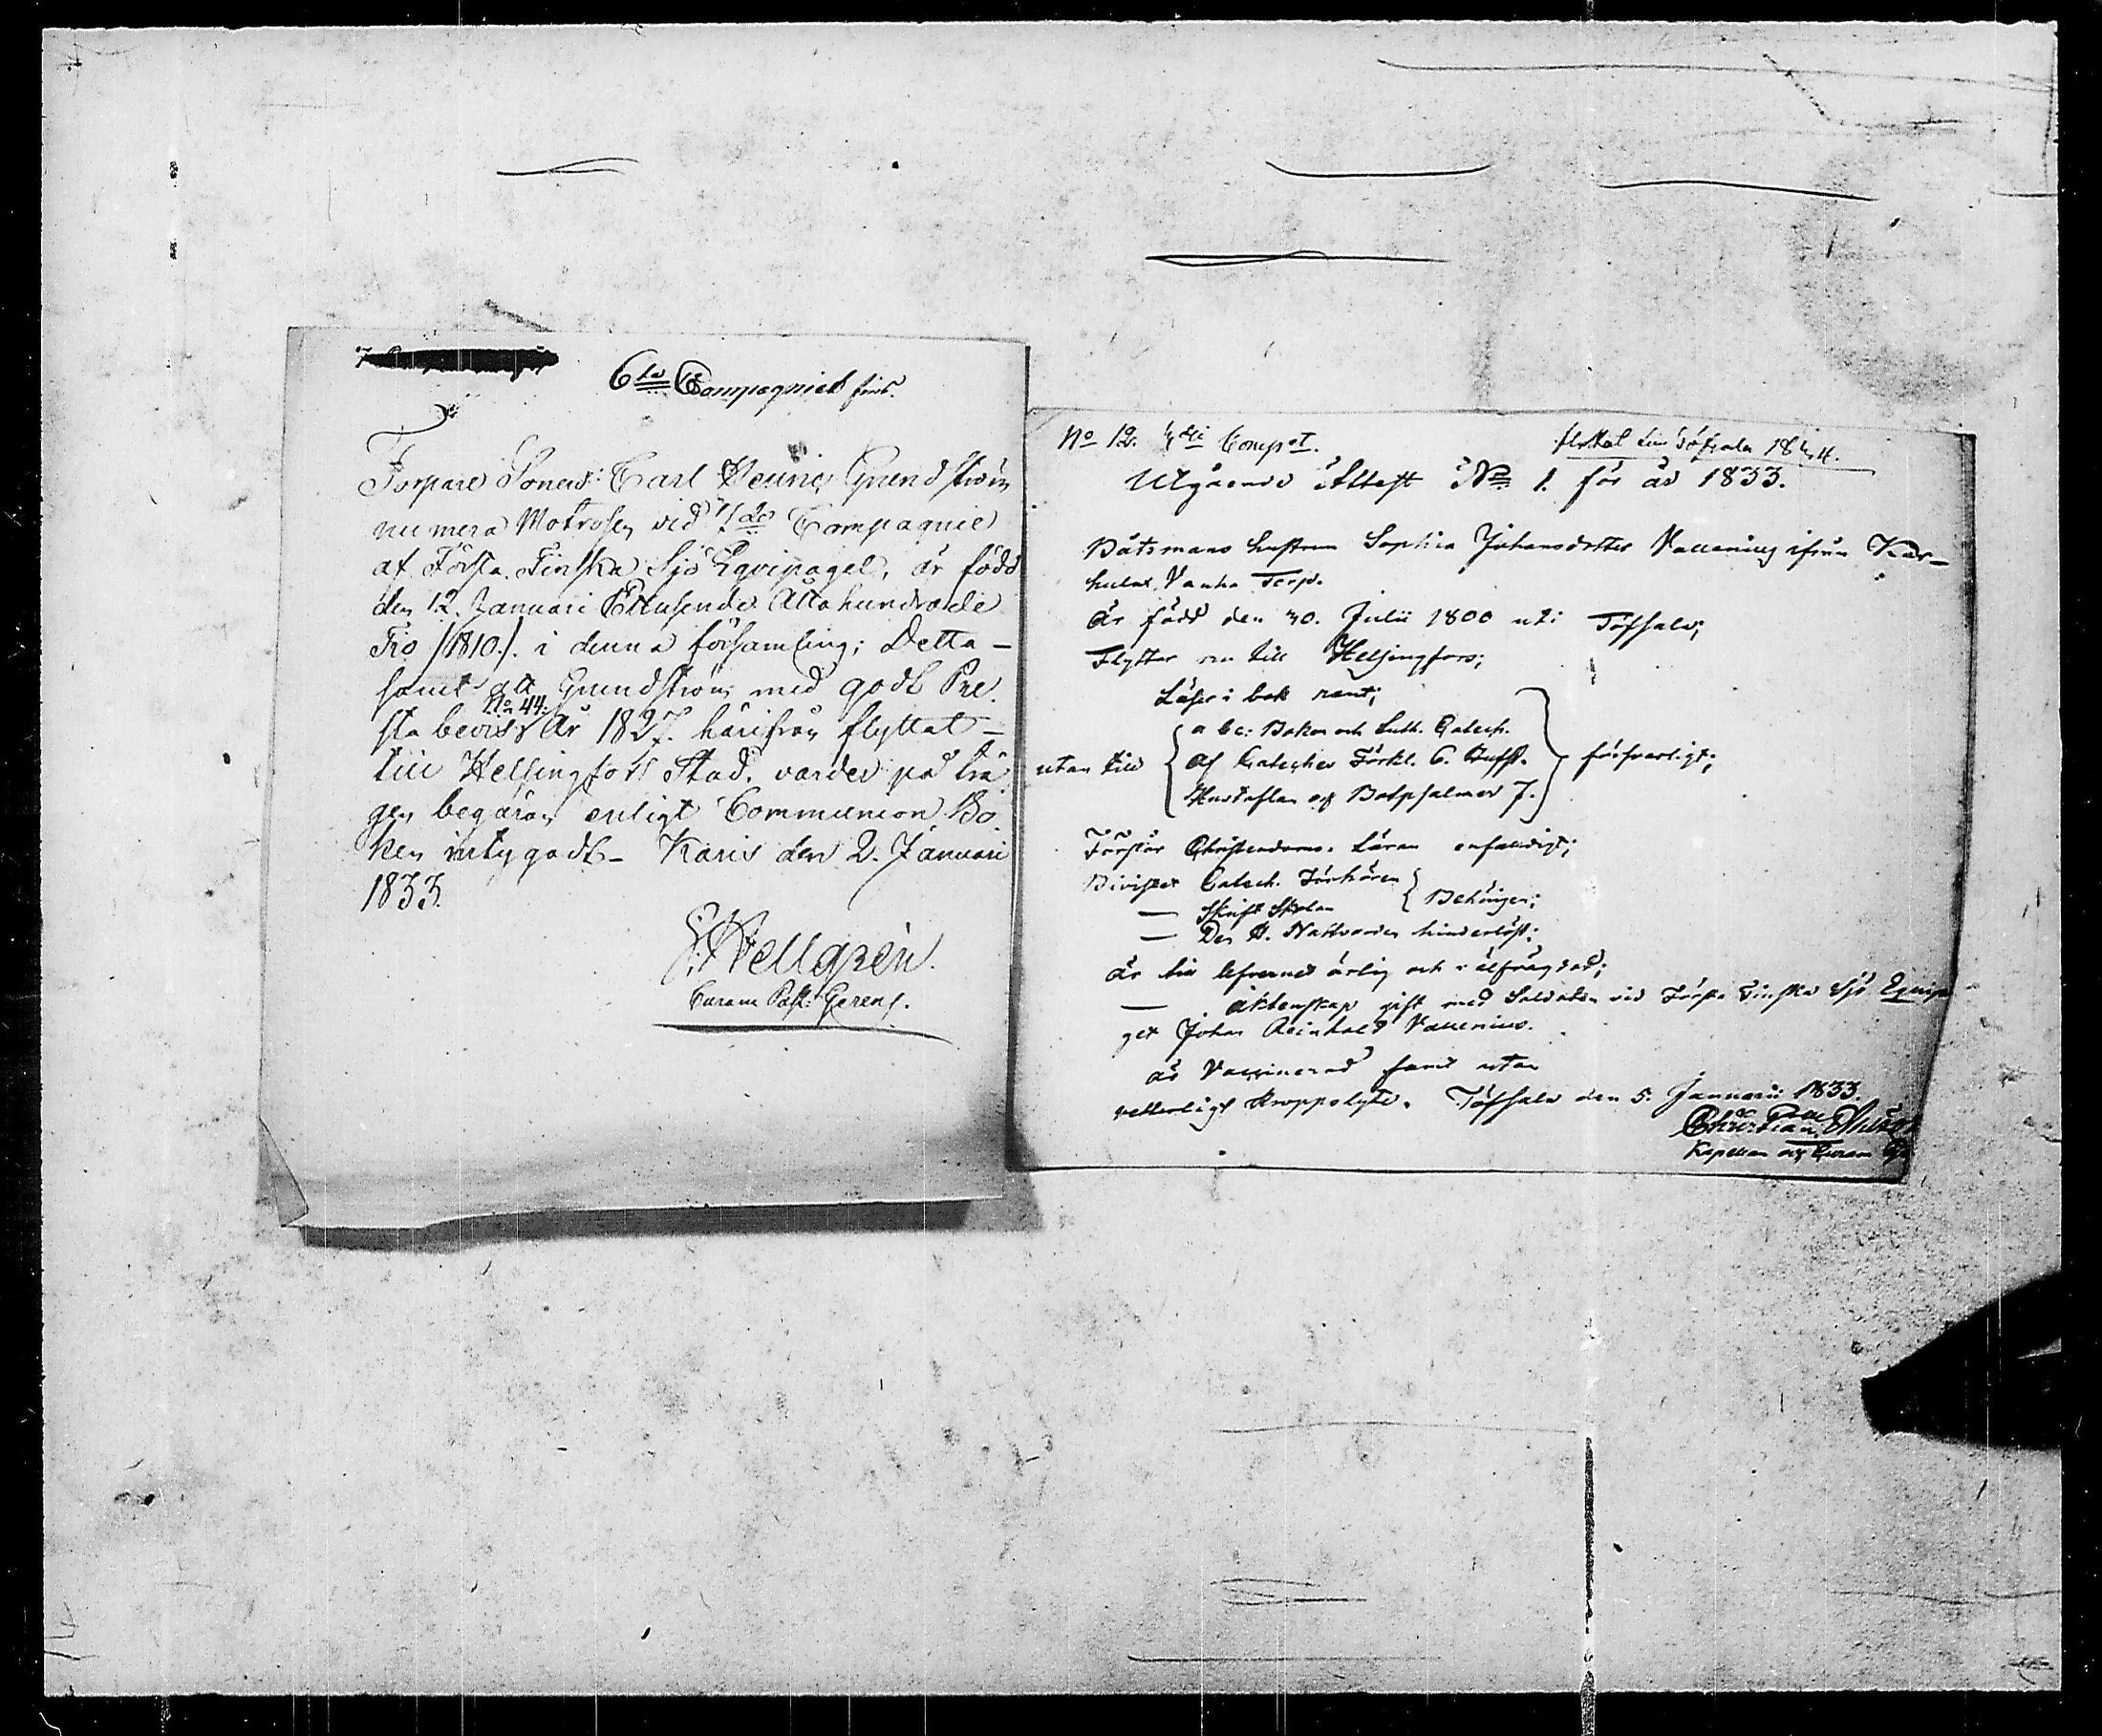 6te Compagniet
Torpare Sonen Carl Henric Grundström
numera Matrosen vid Compagnie
af Första Finska Sjö Eqvipaget, är född
den 12. Januari Ettusende Åttahundrade
Tio /1810./. i denna församling; Detta –
samt att Grundström med godt Pre
sta bevis No 44: År 1827. härifrån flyttat –
till Helsingfors Stad. varder på trä
gen begäran enligt Communion Bo
ken intygadt – Karis den 2. Januari
1833.
Hellgrén.
Curam Past: Gerens.
No 12. Compet.
Utgående Attest No 1. för år 1833.
Båtsmans hustrun Sophia Johansdotter ifrån
Torp.
är född den 30. Julii 1800 uti Töfsala;
Flyttar nu till Helsingfors;
Läser i bok rent;
a b c: Boken och Luth. Catech.
utan till af Cateches Förkl. 6. försvarligt;
Hustaflan och Botpsalmer 7.
Förstår Christendoms Läran enfaldigt;
Bivistat Catech. Förhören
— Skrift Skolan Behörigen;
— Den H. Nattvarden hinderlöst;
är till lefvernet ärlig och i
— äktenskap gift med Soldaten vid Första Finska Sjö Equipa
get Johan Reinhold
är Vaccinerad samt utan
vetterligt kroppslyte. Töfsala den 5. Januarii 1833.
Christian
Kapellan och Curam